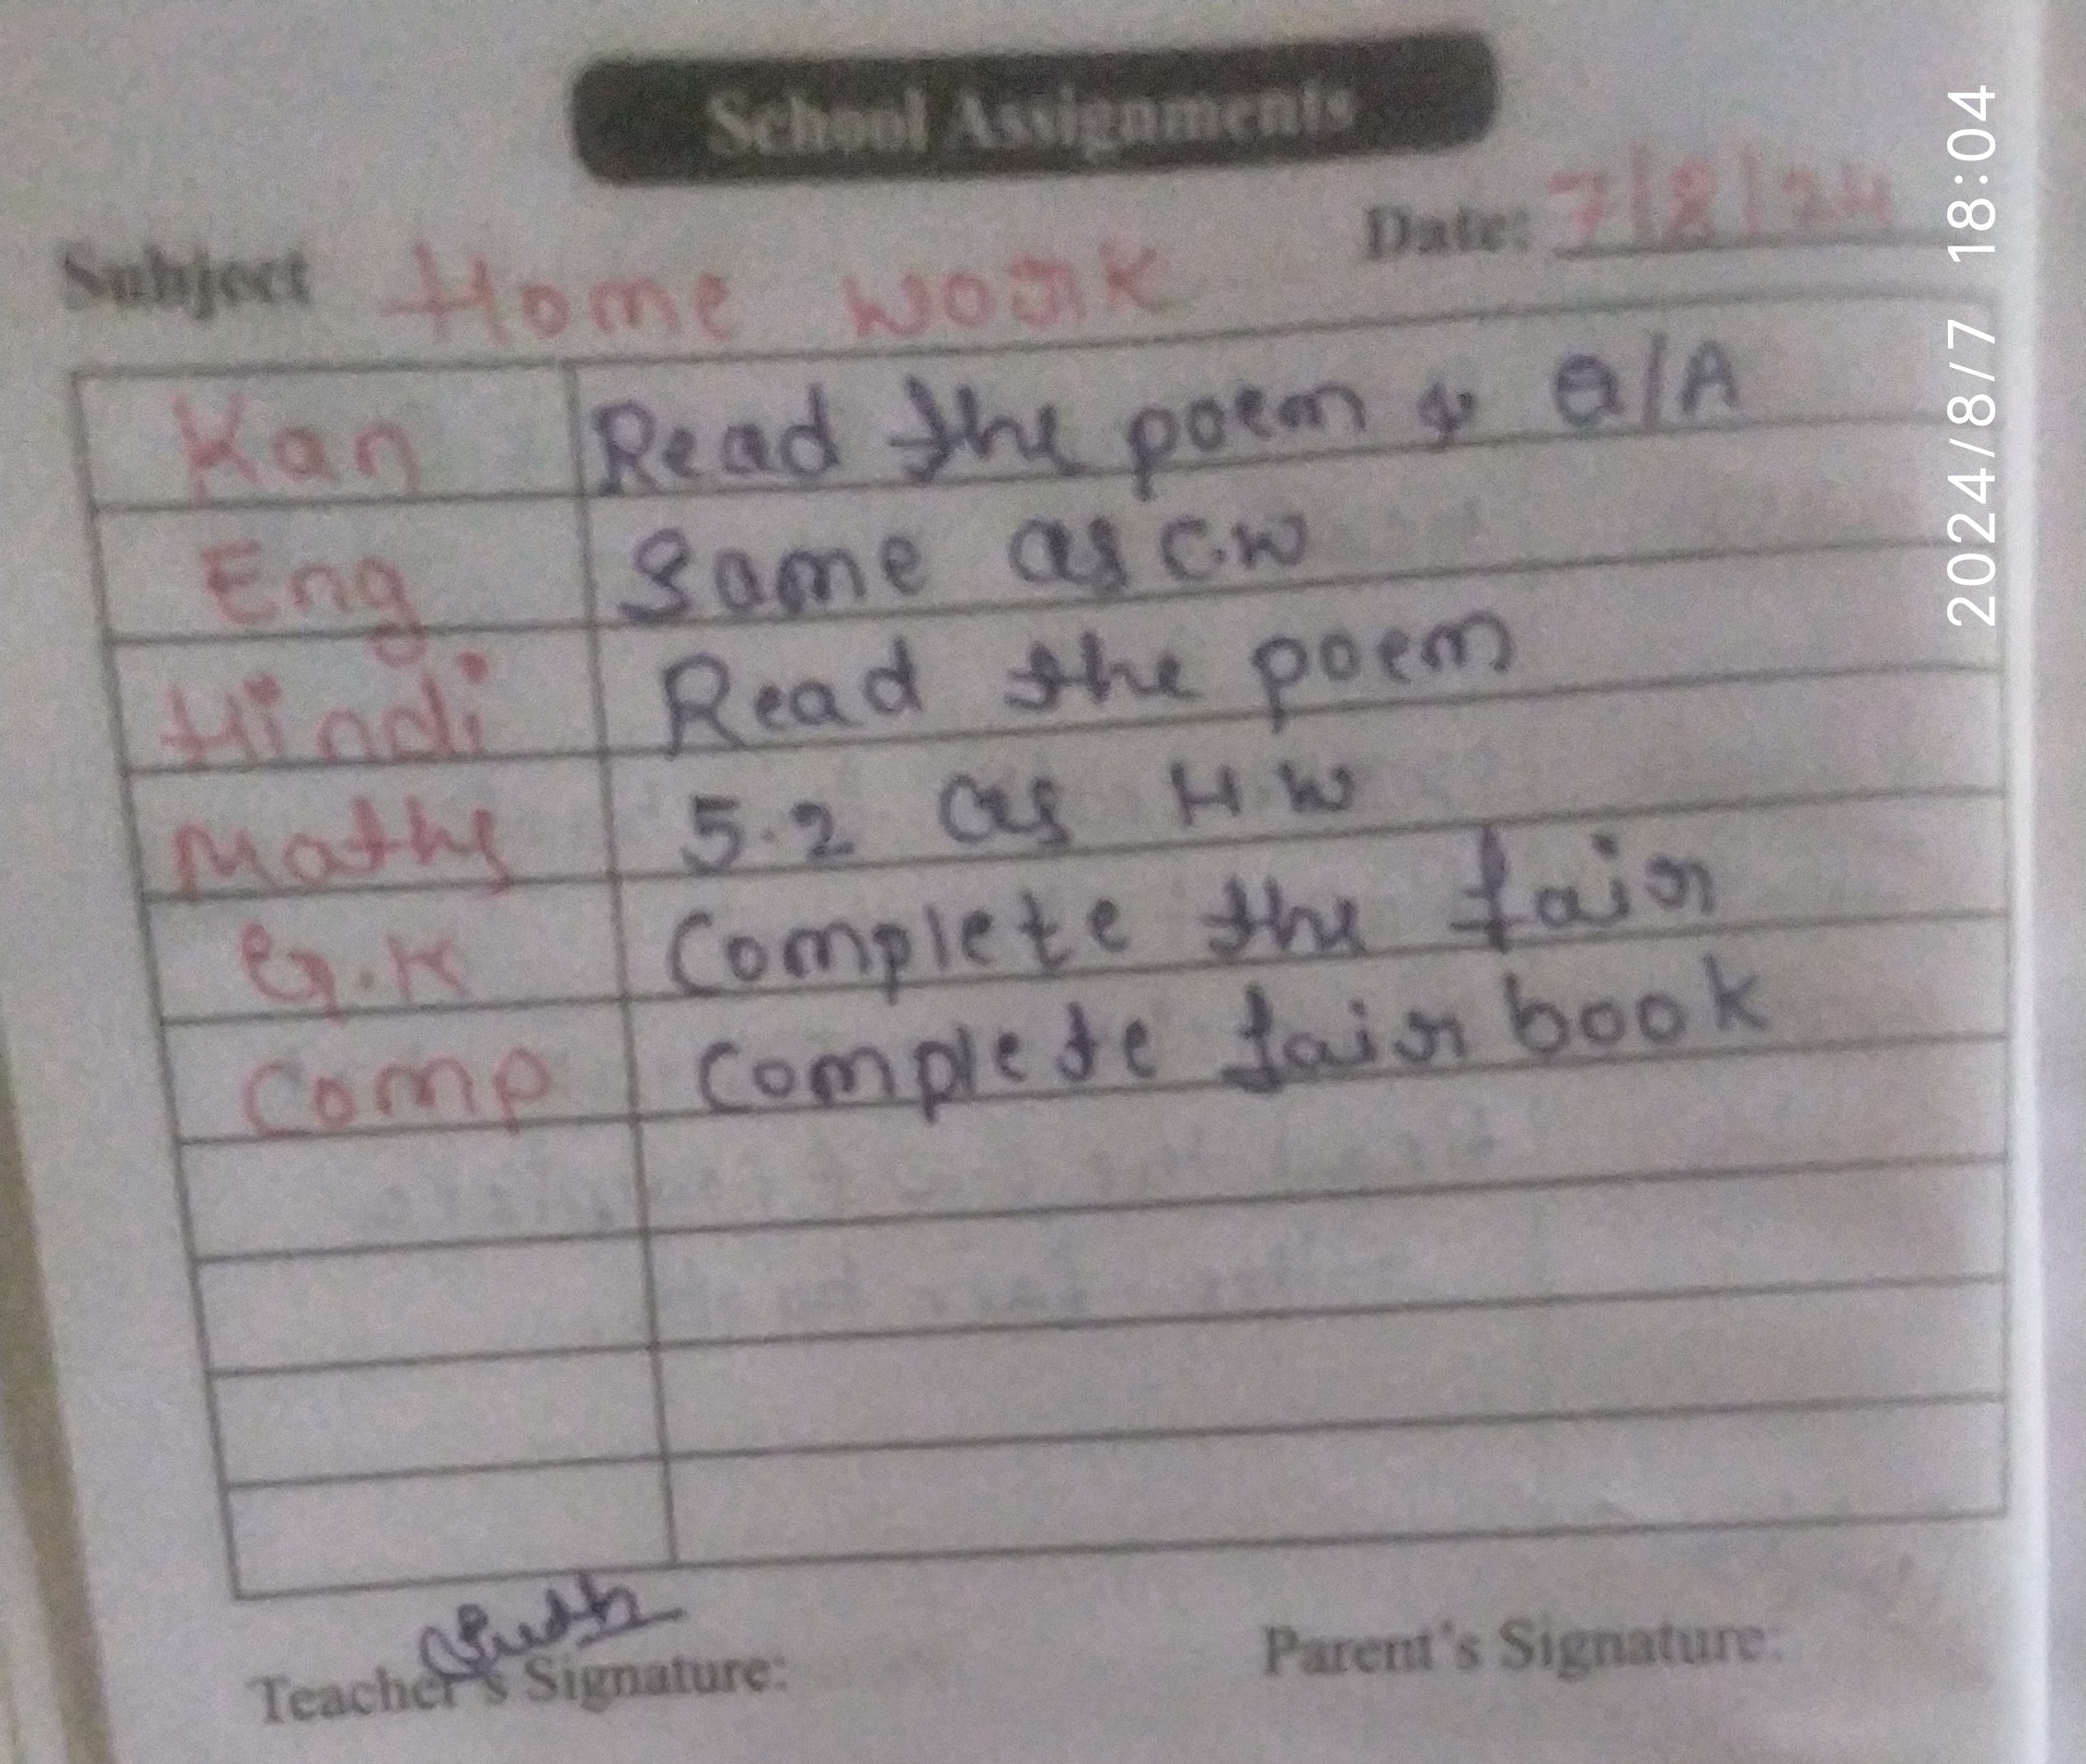 School Assignments
Date: 7/8/24
Subject Home work
Kan Read the poem & Q/A
Eng Same as C.W
Hindi Read the poem
Maths 5.2 as H.W
G.K Complete the fair
Comp Complete fair book
Teacher's Signature:
Parent's Signature:
2024/8/7 18:04